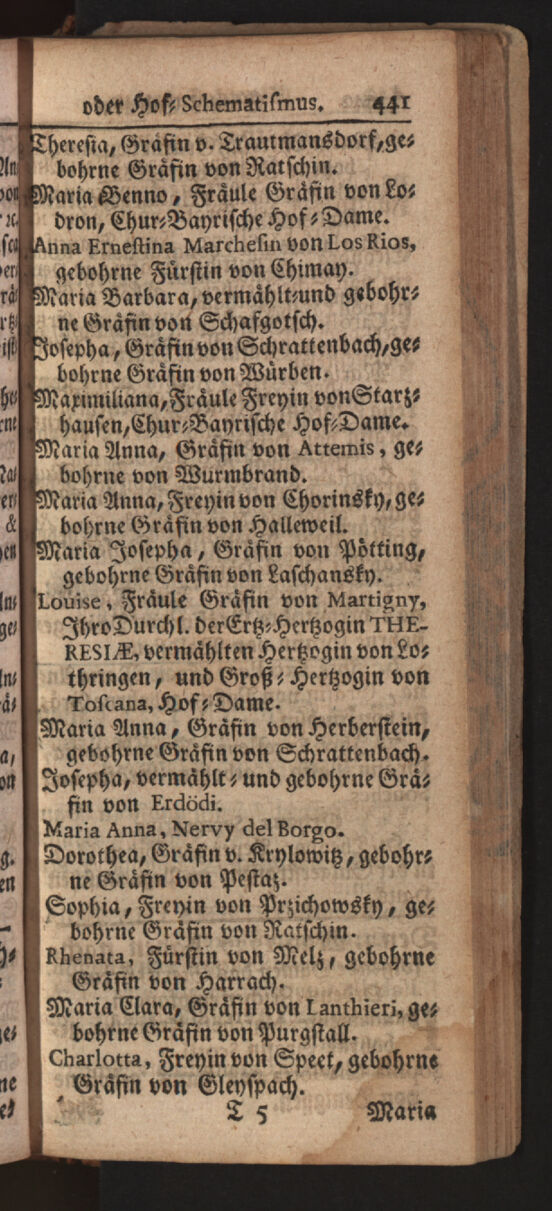 oder Hof⸗Schematismus. 441
Theresia, Gräfin v. Trautmansdorf, ge⸗
bohrne Gräfin von Ratschin.
Maria Benno, Fräule Gräfin von Lo⸗
dron, Chur⸗Bayrische Hof⸗Dame.
Anna Ernestina Marchesin von Los Rios,
gebohrne Fürstin von Chimay.
Maria Barbara, vermählt⸗und gebohr⸗
ne Gräfin von Schafgotsch.
Josepha, Gräfin von Schrattenbach, ge⸗
bohrne Gräfin von Würben.
Maximiliana, Fräule Freyin von Startz⸗
hausen, Chur⸗Bayrische Hof⸗Dame.
Maria Anna, Gräfin von Attemis, ge⸗
bohrne von Wurmbrand.
Maria Anna, Freyin von Chorinsky, ge⸗
bohrne Gräfin von Halleweil.
Maria Josepha, Gräfin von Pötting,
gebohrne Gräfin von Laschansky.
Louise, Fräule Gräfin von Martigny,
Ihro Durchl. der Ertz⸗Hertzogin THE-
RESIÆ, vermählten Hertzogin von Lo⸗
thringen, und Groß⸗Hertzogin von
Toscana, Hof⸗Dame.
Maria Anna, Gräfin von Herberstein,
gebohrne Gräfin von Schrattenbach.
Josepha, vermählt⸗und gebohrne Grä⸗
fin von Erdödi.
Maria Anna, Nervy del Borgo.
Dorothea, Gräfin v. Krylowitz, gebohr⸗
ne Gräfin von Pestaz.
Sophia, Freyin von Przichowsky, ge⸗
bohrne Gräfin von Ratschin.
Rhenata, Fürstin von Melz, gebohrne
Gräfin von Harrach.
Maria Clara, Gräfin von Lanthieri, ge⸗
bohrne Gräfin von Purgstall.
Charlotta, Freyin von Speet, gebohrne
Gräfin von Gleyspach.
T 5 Maria